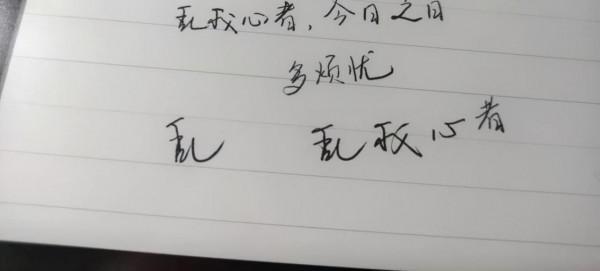 乱我心者,今日之日
多烦忧
乱 乱我心者